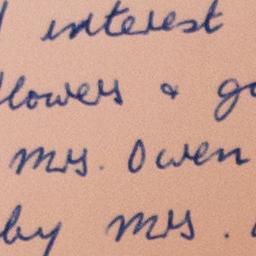 interest
flowers &
Mrs. Owen
by Mrs.